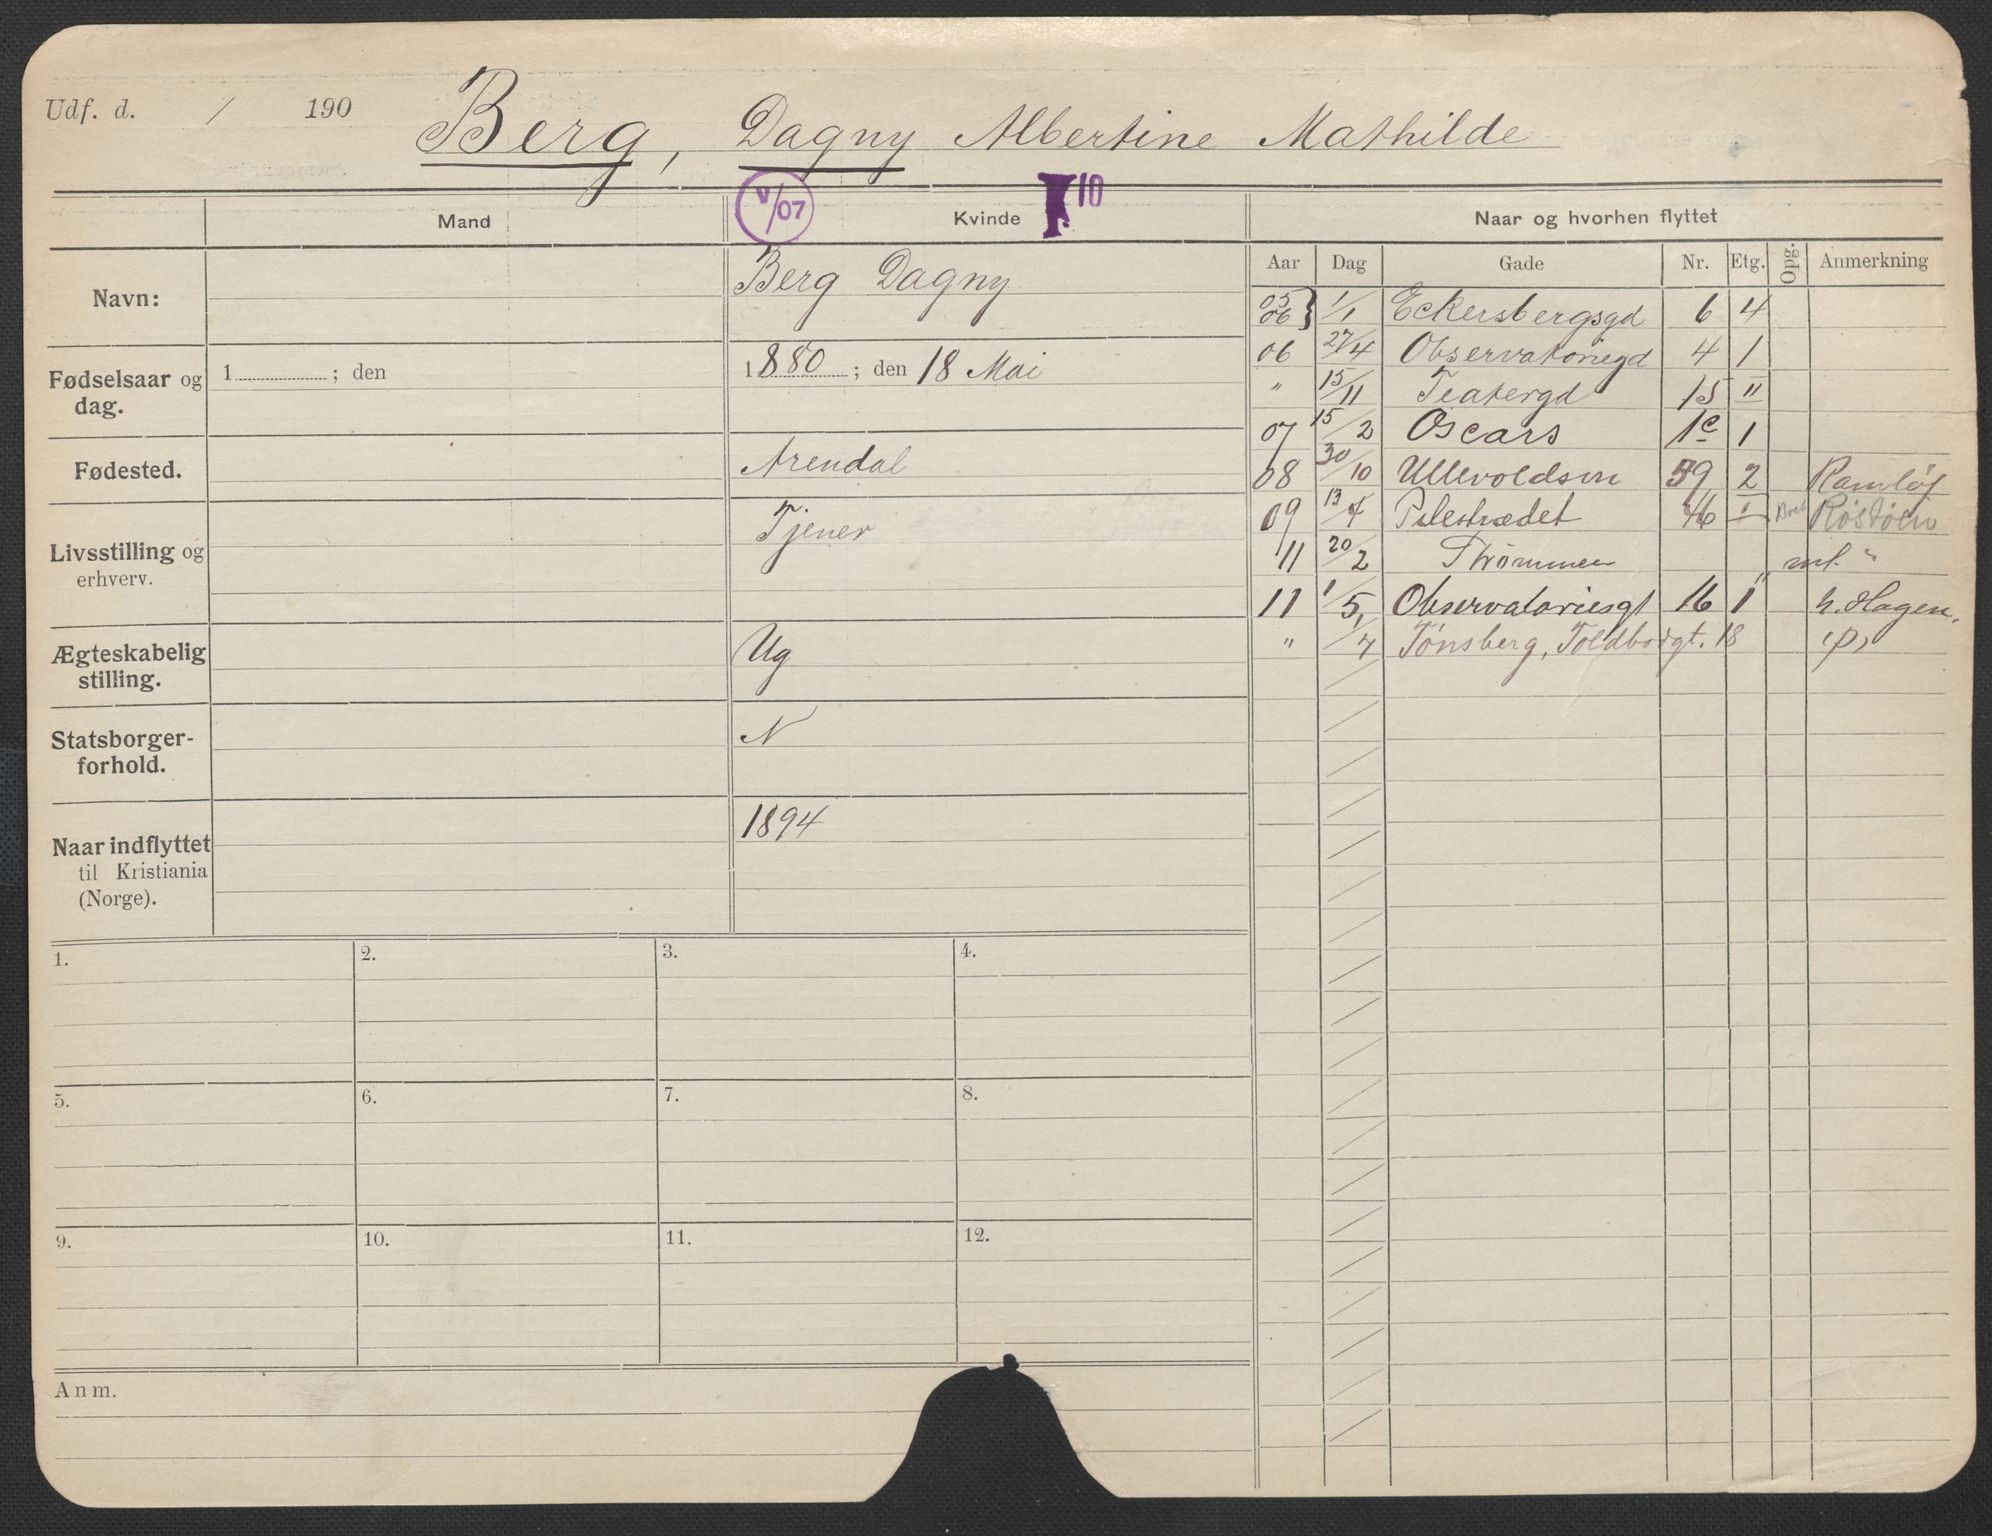 Udf. d. / 190
Berg, Dagny Albertine Mathilde
V/07
F 10
Mand
Kvinde
Naar og hvorhen flyttet
Navn:
Berg Dagny
Fødselsaar og dag.
1 ; den
1880 ; den 18 Mai
Fødested.
Arendal
Livsstilling og erhverv.
Tjener
Ægteskabelig stilling.
Ug
Statsborgerforhold.
N
Naar indflyttet til Kristiania (Norge).
1894
Aar Dag Gade Nr. Etg. Opg. Anmerkning
05 06 } 1/1 Eckersbergsgd 6 4
06 27/4 Observatoriegd 4 1
" 15/11 Teatergd 15 II
07 15/2 Oscars 1c 1
08 30/10 Ullevoldsvn 59 2
09 13/4 Pilestrædet 46 I
11 20/2 Strømmen
11 1/5 Observatoriesgt 16 1 h. Hagen.
" /7 Tønsberg, Toldbodgt. 18 (P)
1.
2.
3.
4.
5.
6.
7.
8.
9.
10.
11.
12.
Anm.